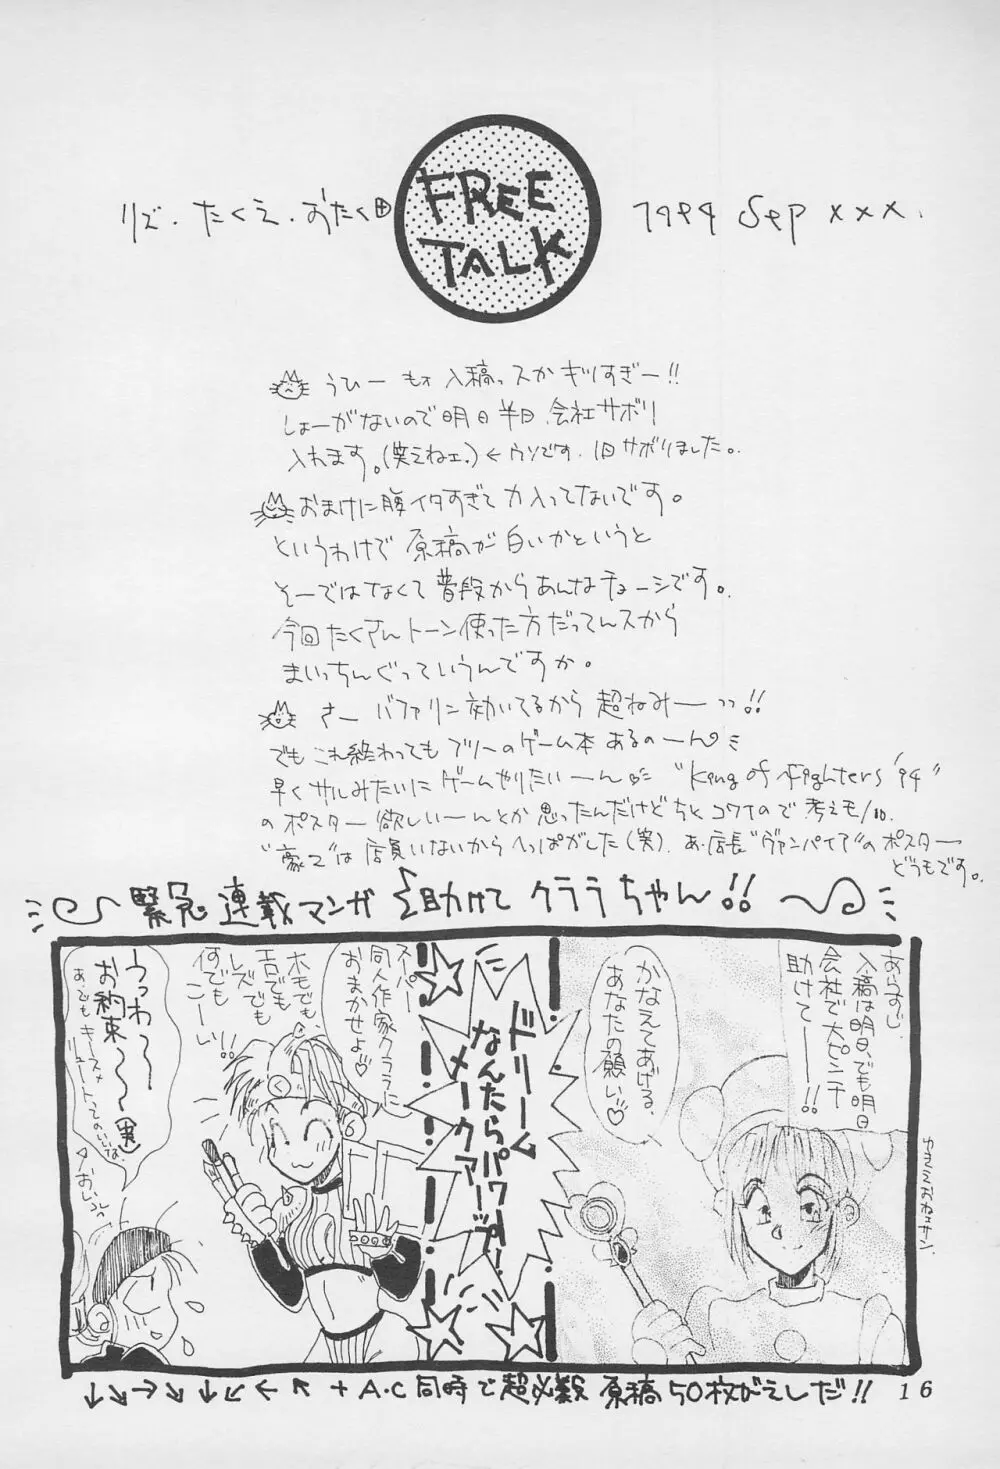 リズ・たくえ・おたく田
FREE
TALK
1994 Sep xxx.
うひー もォ入稿ッスかギリすぎー!!
しょーがないので明日半日、会社サボリ
入れます。(笑えねェ。)←ウソです。1日サボりました。
おまけに腹イタすぎて力入ってないです。
というわけで原稿が白いかというと
そーではなくて普段からあんなチョーシです。
今回たくさんトーン使った方だってんスから
まいっちんぐっていうんですか。
さー バファリン効いてるから超ねみーーッッ!!
でもこれ終わってもフリーのゲーム本あるのーん
早くサルみたいにゲームやりたいーん "King of Fighters '94"
のポスター欲しいーんとか思ったんだけどちとコワイので考えモノ。
"豪Ⅱ"は店員いないからへっぱがした(笑)。あ、店長"ヴァンパイア"のポスター
どうもです。
緊急連載マンガ 助けてクララちゃん!!
あらすじ
入稿は明日、でも明日
会社で大ピンチ
助けてーー!!
かなえてあげる。
あなたの願い♡
ドリーム
なんたらパワー!
メークアーップ!!
スーパー
同人作家クララに
おまかせよ♡
ホモでも、
エロでも
レズでも
何でも
こーい!!
うっわ〜〜
お約束〜〜(実)
↓↘→↘↓↙←↖+A・C同時で超必殺 原稿50枚がえしだ!!
16